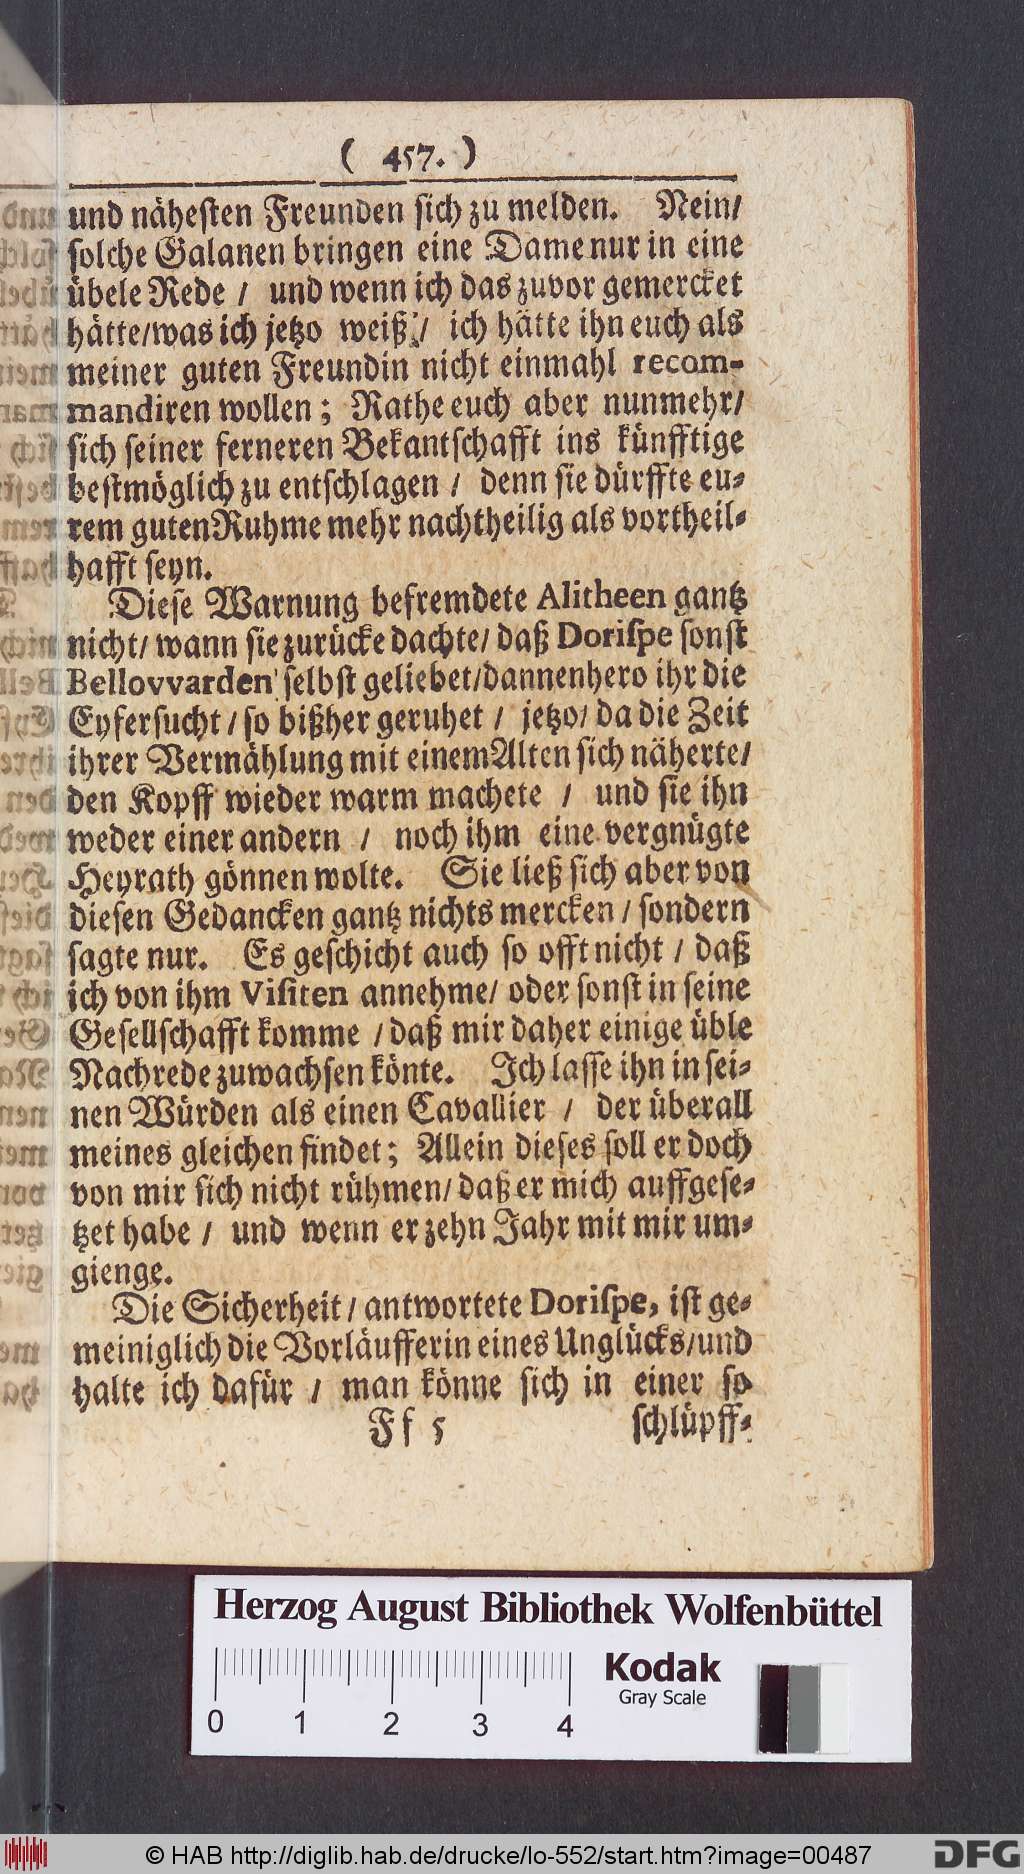 ( 457. )
und nähesten Freunden sich zu melden. Nein/
solche Galanen bringen eine Dame nur in eine
übele Rede / und wenn ich das zuvor gemercket
hätte/was ich jetzo weiß / ich hätte ihn euch als
meiner guten Freundin nicht einmahl recom-
mandiren wollen; Rathe euch aber nunmehr/
sich seiner ferneren Bekantschafft ins künfftige
bestmöglich zu entschlagen / denn sie dürffte eu-
rem guten Ruhme mehr nachtheilig als vortheil-
hafft seyn.
Diese Warnung befremdete Alitheen gantz
nicht/ wann sie zurücke dachte/ daß Dorispe sonst
Bellovvarden selbst geliebet/dannenhero ihr die
Eyfersucht / so bißher geruhet / jetzo/ da die Zeit
ihrer Vermählung mit einem Alten sich näherte/
den Kopff wieder warm machete / und sie ihn
weder einer andern / noch ihm eine vergnügte
Heyrath gönnen wolte. Sie ließ sich aber von
diesen Gedancken gantz nichts mercken / sondern
sagte nur. Es geschicht auch so offt nicht / daß
ich von ihm Visiten annehme/ oder sonst in seine
Gesellschafft komme / daß mir daher einige üble
Nachrede zuwachsen könte. Ich lasse ihn in sei-
nen Würden als einen Cavallier / der überall
meines gleichen findet; Allein dieses soll er doch
von mir sich nicht rühmen/ daß er mich auffgese-
tzet habe / und wenn er zehn Jahr mit mir um-
gienge.
Die Sicherheit / antwortete Dorispe, ist ge-
meiniglich die Vorläufferin eines Unglücks/und
halte ich dafür / man könne sich in einer so
Ff 5 schlüpff-
Herzog August Bibliothek Wolfenbüttel
Kodak
Gray Scale
0 1 2 3 4
© HAB http://diglib.hab.de/drucke/lo-552/start.htm?image=00487
DFG